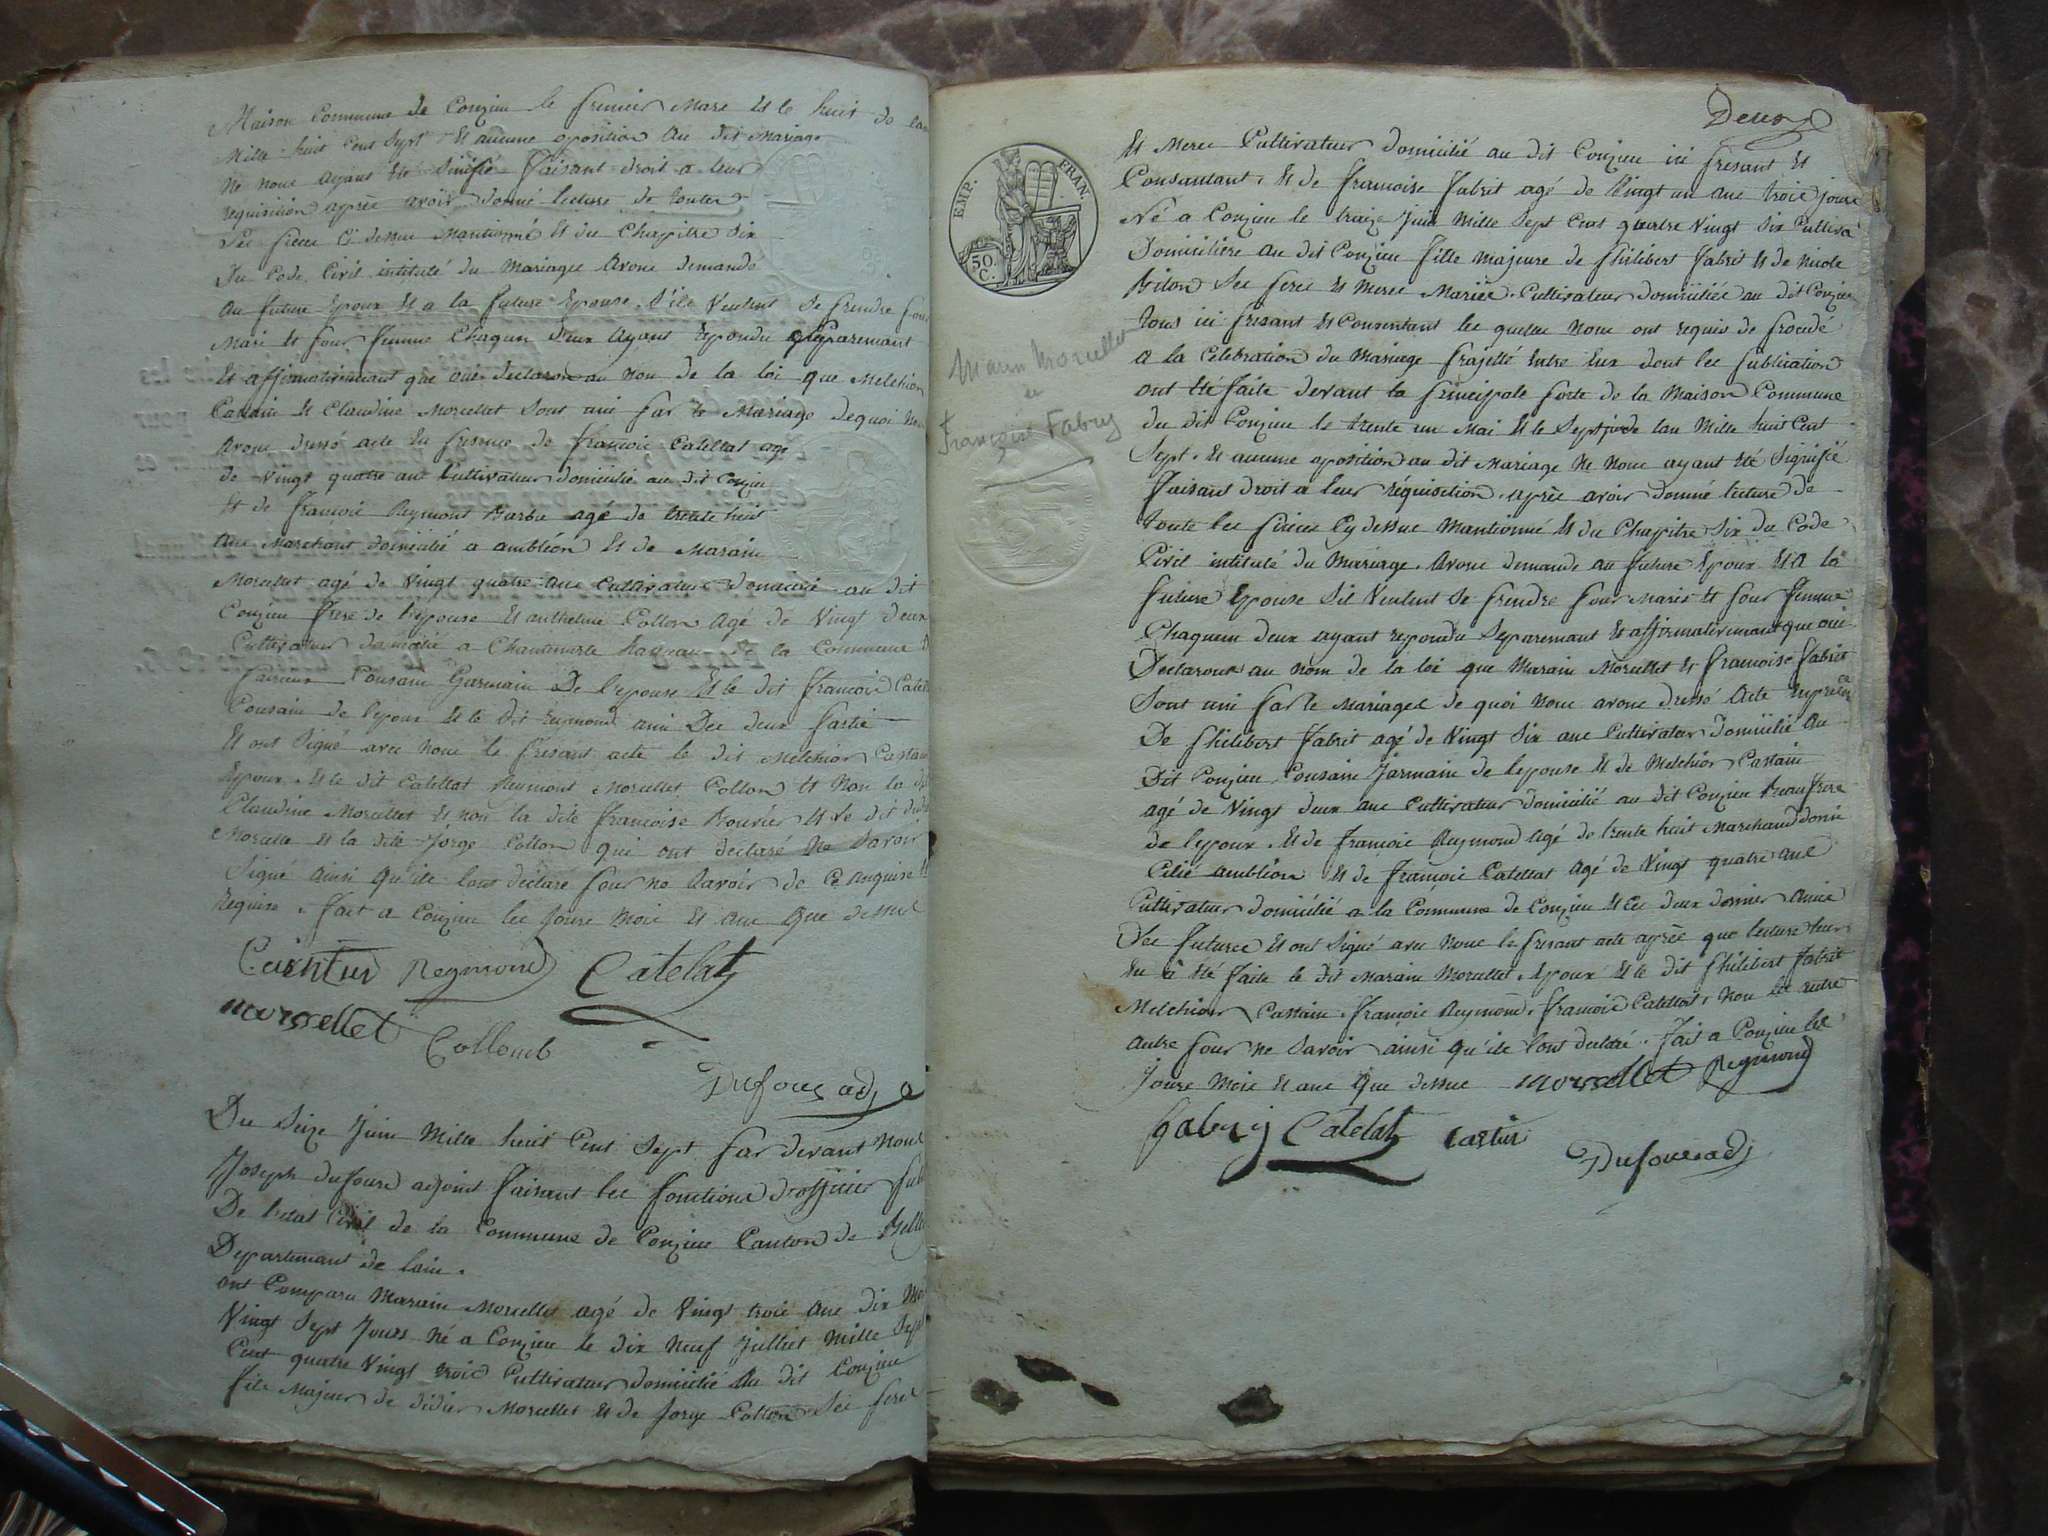 Maison Commune de Conzieu le premier Mars et le huit de lan
Mille huit Cent Sept Et aucune oposition au dit Mariage
Ne nous ayant été Sinifié faisant droit a leur
requisition après avoir donné lecture de toutes
Les pieces Ci dessus Mantionné et du Chapitre Six
Du Code Civil intitulé du Mariages avons demandé
au future Epoux et a la future Epouse S'ils Veulent Se prendre pour
Mari et pour femme Chaqun deux ayant repondu separemant
Et affirmativemant que oui declarons au nom de la loi que Melchior
Castain et Claudine Morcellat Sont uni par le Mariage dequoi Nous
avons dressé acte En presence de françois Catellat agé
de Vingt quatre ans Cultivateur domicilié au dit Conzieu
Et de françois Reymont Barbu agé de trente huit
ans Marchant domicilié a ambléon Et de Marain
Morcellet agé de Vingt quatre ans Cultivateur domicilié au dit
Conzieu frere de l'epouse Et anthelme Collon agé de Vingt deux
Cultivateur domicilié a hapeau de la Commune
Cousain Garmain De l'epouse Et le dit françois Catel
Cousain de lepoux Et le dit reymond ami Des deux partie
Et ont Signé avec nous le presant acte le dit Melchior Castain
Epoux Et le dit Catellat Reymont Morcellet Collon Et Non la dit
Claudine Morcellet et non la dite françoise Bouvier Et le dit didier
Morcelle et la dite Jorge Collon qui ont declaré Ne Savoir
Signé ainsi qu'ils lont déclaré pour ne Savoir de Ce anquise
Requise. fait a Conzieu les Jours Mois et ans Que dessus
Reymond Catelat
morssellet Collomb
Dufour adj
Du Seize Juin Mille huit Cent Sept par devant Nous
Joseph dufoure adjoint faisant les fonctions d'officier publ
De l'etat Civil de la Commune de Conzieu Canton de Belle
Departemant de lain.
ont Comparu Marain Morcellet agé de Vingt trois ans dix Mois
Vingt Sept Jours Né a Conzieu le dix neuf Julliet Mille Sept
Cent quatre Vingt trois Cultivateur domicilié au dit Conzieu
fils Majeur de didier Morcellet et de Jorge Collon Ses pere
Deux
EMP. FRAN.
50 C.
Et Mere Cultivateur domicilié au dit Conzieu ici presant Et
Consantant, Et de francoise fabrit agé de Vingt un ans trois jours
Né a Conzieu le traize Juin Mille Sept Cent quatre Vingt Six Cultiva
Domiciliere au dit Conzieu fille majeure de philibert fabrit et de nicole
Bilon Ses peres et Meres Mariée Cultivateur domiciliés au dit Conzieu
tous ici presant et Consentant les quelles Nous ont requis de procedé
a la Célebration du Mariage projetté entre Eux dont les publication
ont été faite devant la principale porte de la Maison Commune
du dit Conzieu le trente un Mai et le Sept juin de lan Mille huit Cent
Sept. Et aucune oposition au dit Mariage Ne nous ayant été Signifié
faisant droit a leur réquisition, après avoir donné lecture de
toute les pieces Cy dessus Mantionné Et du Chapitre Six du Code
Civil intitulé du Mariage. avons demande au future Epoux Et a la
future Epouse Sil Veulent Se prendre pour Maris Et pour femme
Chaquun deux ayant repondu Separemant Et affirmativemant que oui
Declarons au nom de la loi que Marain Morcellet et francoise fabrit
Sont uni par le Mariages de quoi Nous avons dressé acte En presance
De philibert fabrit agé de Vingt Six ans Cultivateur Domicilié au
Dit Conzieu Cousain Jarmain de lepouse Et de Melchior Castain
agé de Vingt deux ans Cultivateur domicilié au dit Conzieu Beau frere
de lepoux. Et de francois Reymond agé de trente huit Marchand domi
Cilié ambléon Et de françois Catellat agé de Vingt quatre ans
Cultivateur domicilié a la Commune de Conzieu et Ces deux dernier amis
Des futures Et ont Signé avec Nous le presant acte après que lecture leur
En a été faite le dit Marain Morcellet, Epoux Et le dit philibert fabrit
Melchior Castain, françois Reymond, françois Catellat, Non les autre
autre pour ne Savoir ainsi qu'ils lont declaré. fait a Conzieu les
Jours Mois Et ans Que dessus morssellet Reymond
fabry Catelat Castin
Dufour adj
Marin Morcellet
et
Françoise Fabry